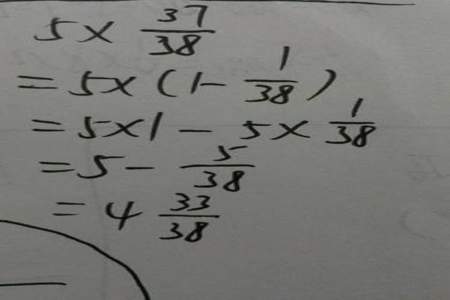 5 × 37/38
= 5 × (1 - 1/38)
= 5 × 1 - 5 × 1/38
= 5 - 5/38
= 4 33/38